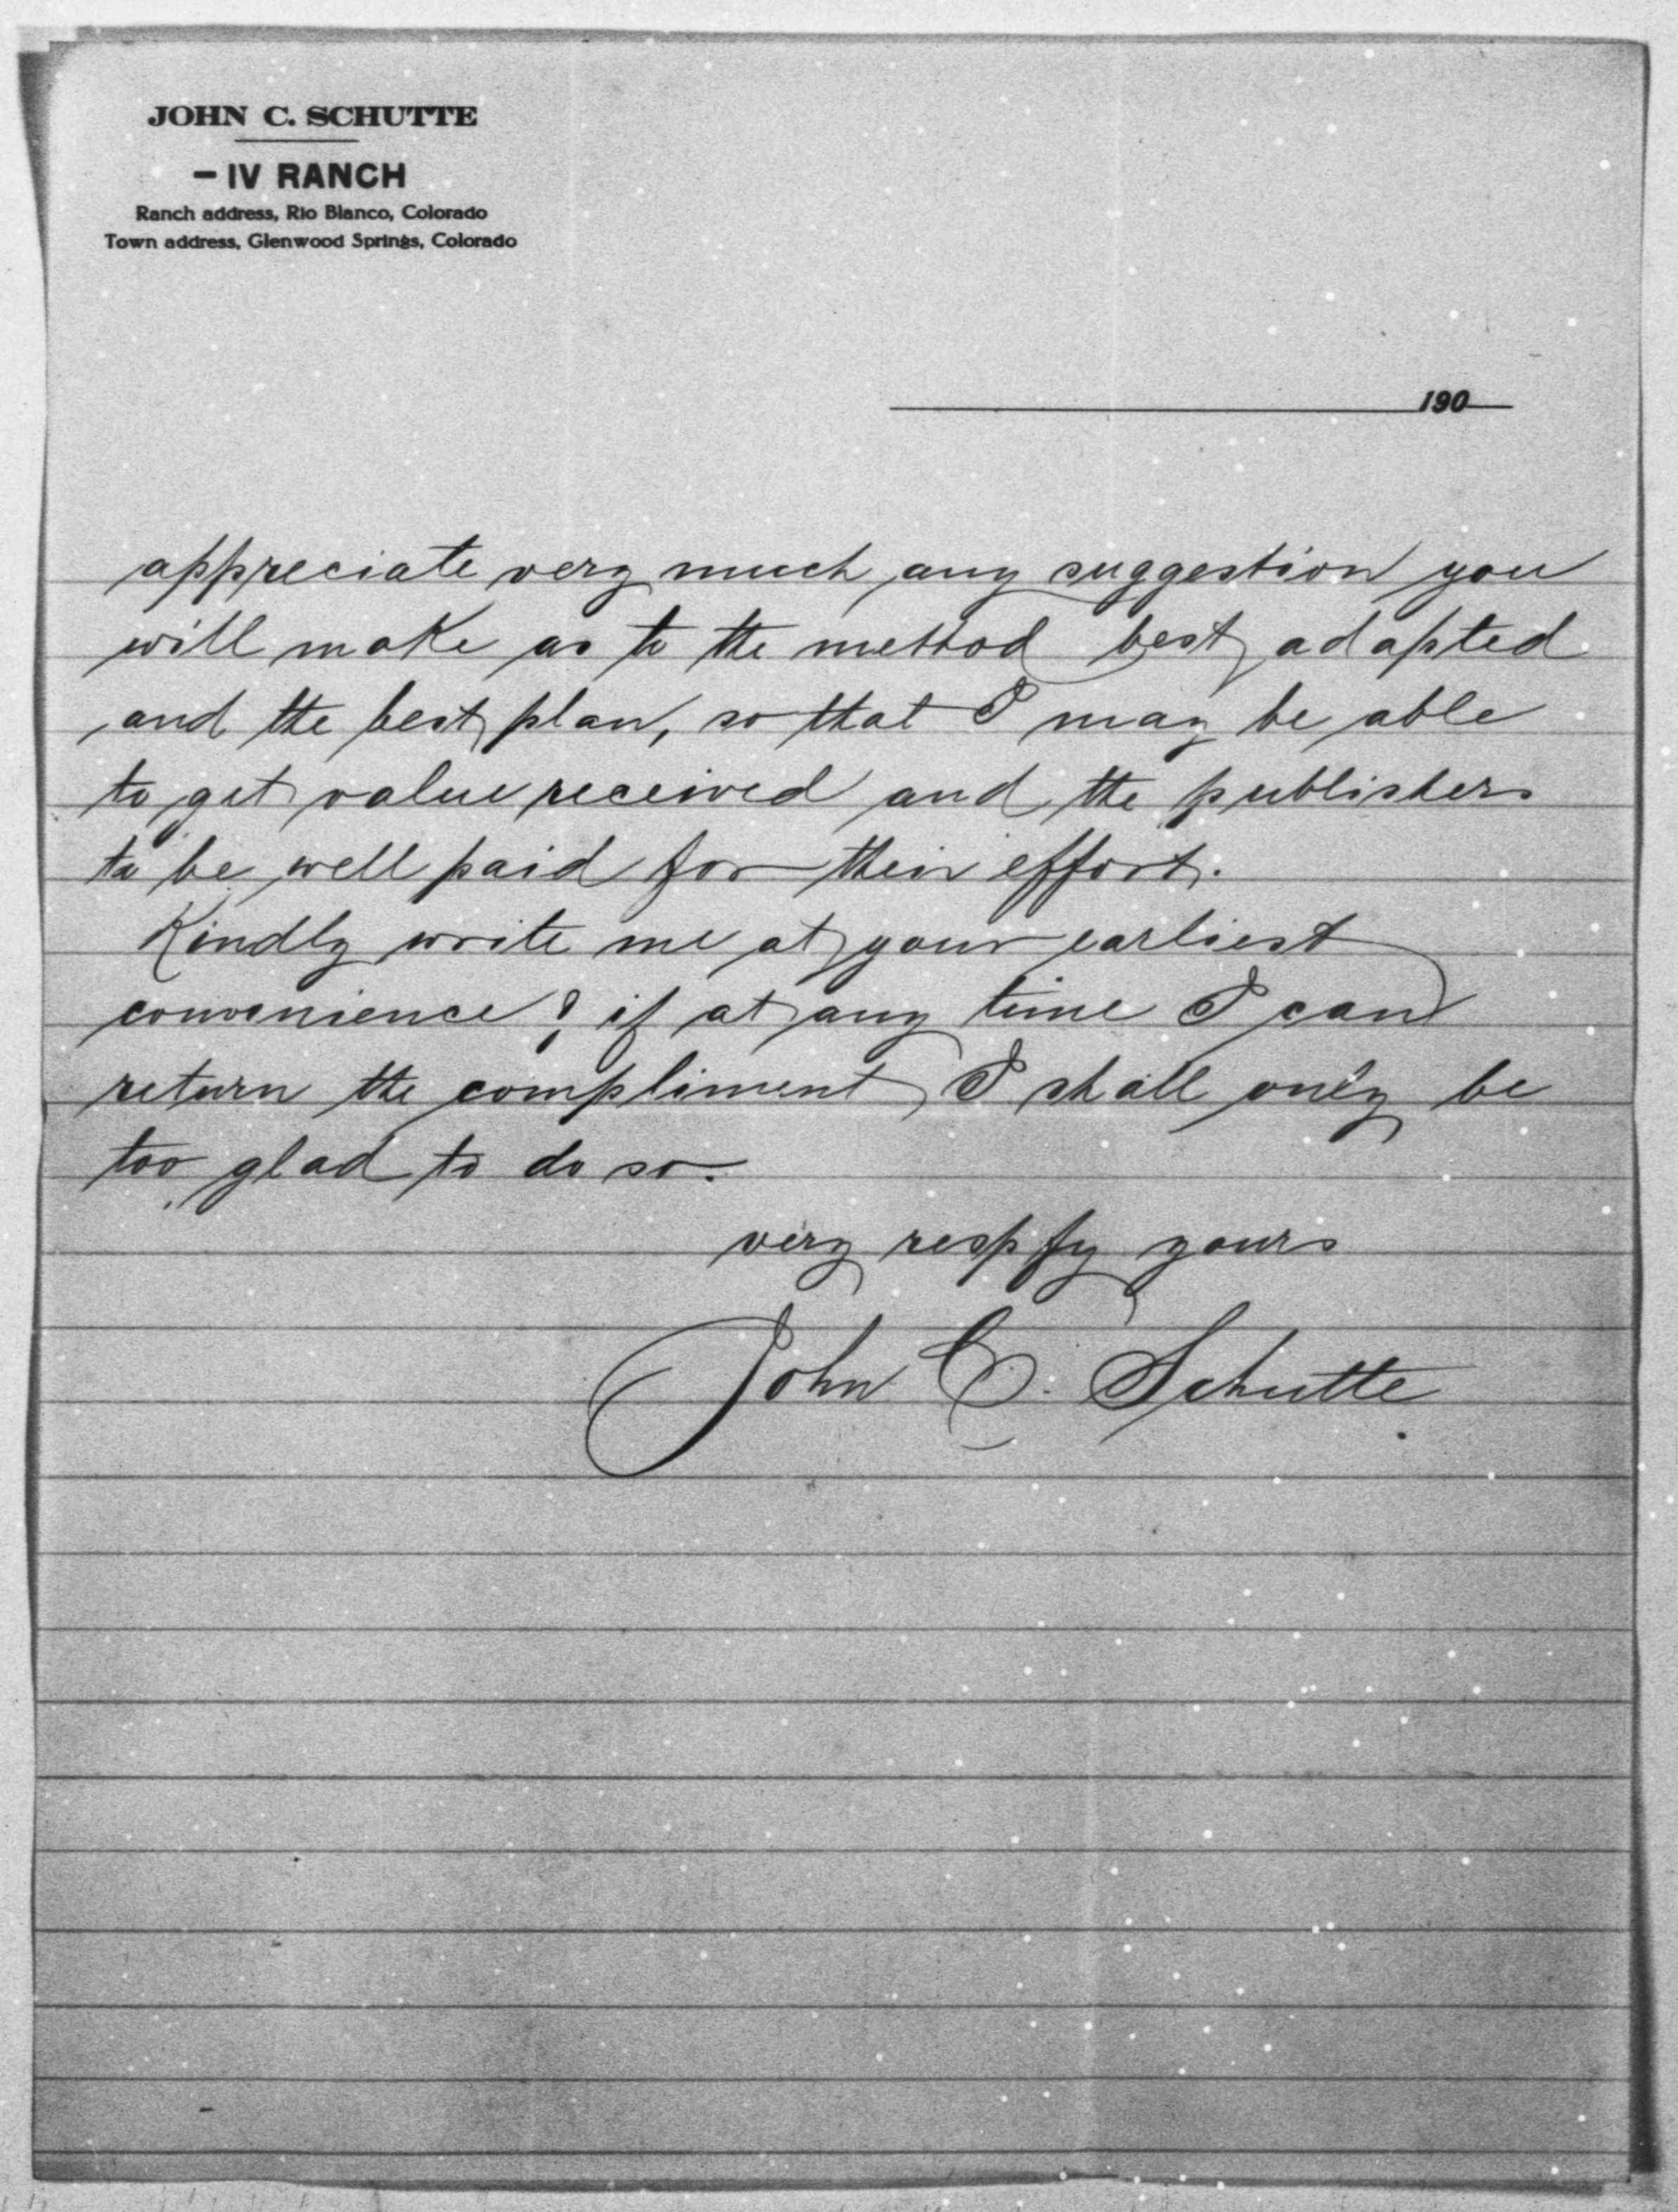 JOHN C. SCHUTTE
– IV RANCH
Ranch address, Rio Blanco, Colorado
Town address, Glenwood Springs, Colorado
190
appreciate very much any suggestion you
will make as to the method best adapted
and the best plan, so that I may be able
to get value received and the publishers
to be well paid for their effort.
Kindly write me at your earliest
convenience & if at any time I can
return the compliment I shall only be
too glad to do so.
very respfy yours
John C. Schutte.